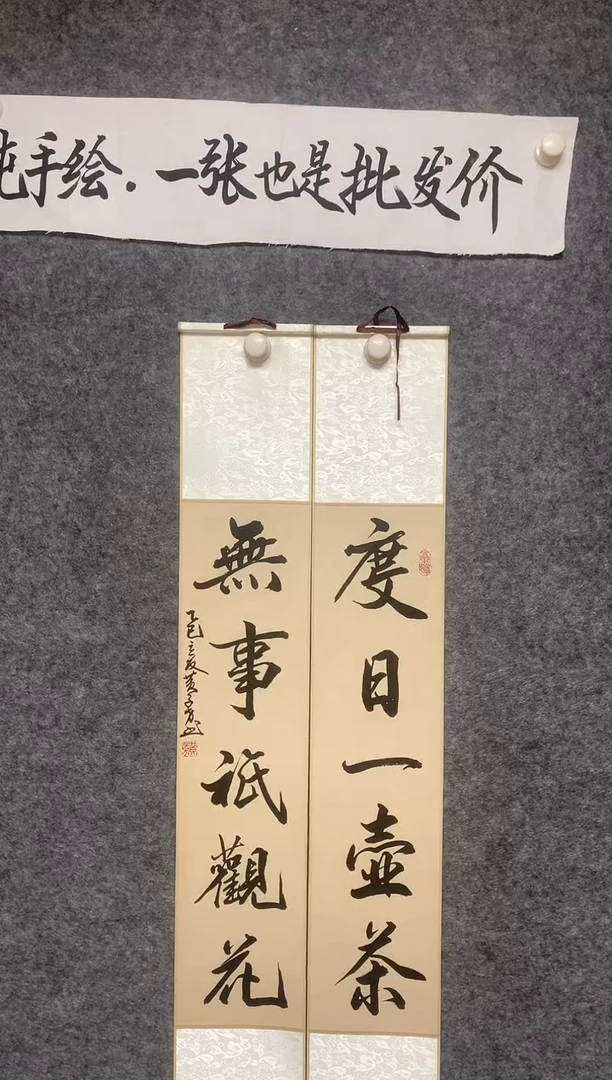 纯手绘.一张也是批发价
度日一壶茶
無事祇觀花
乙巳